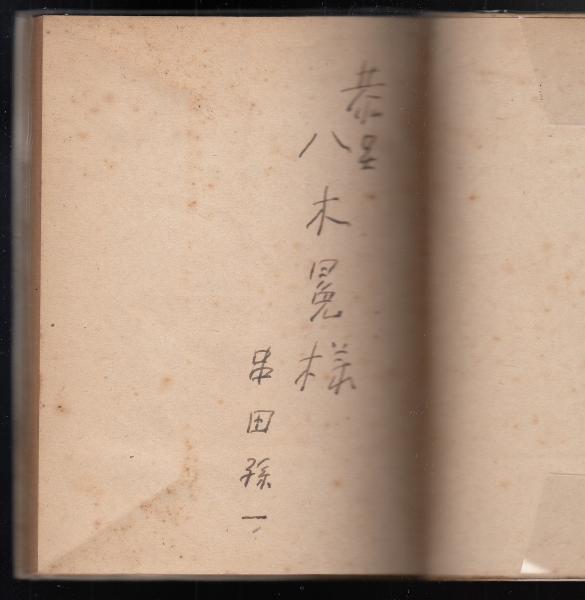 恭呈
八木冕様
串田孫一